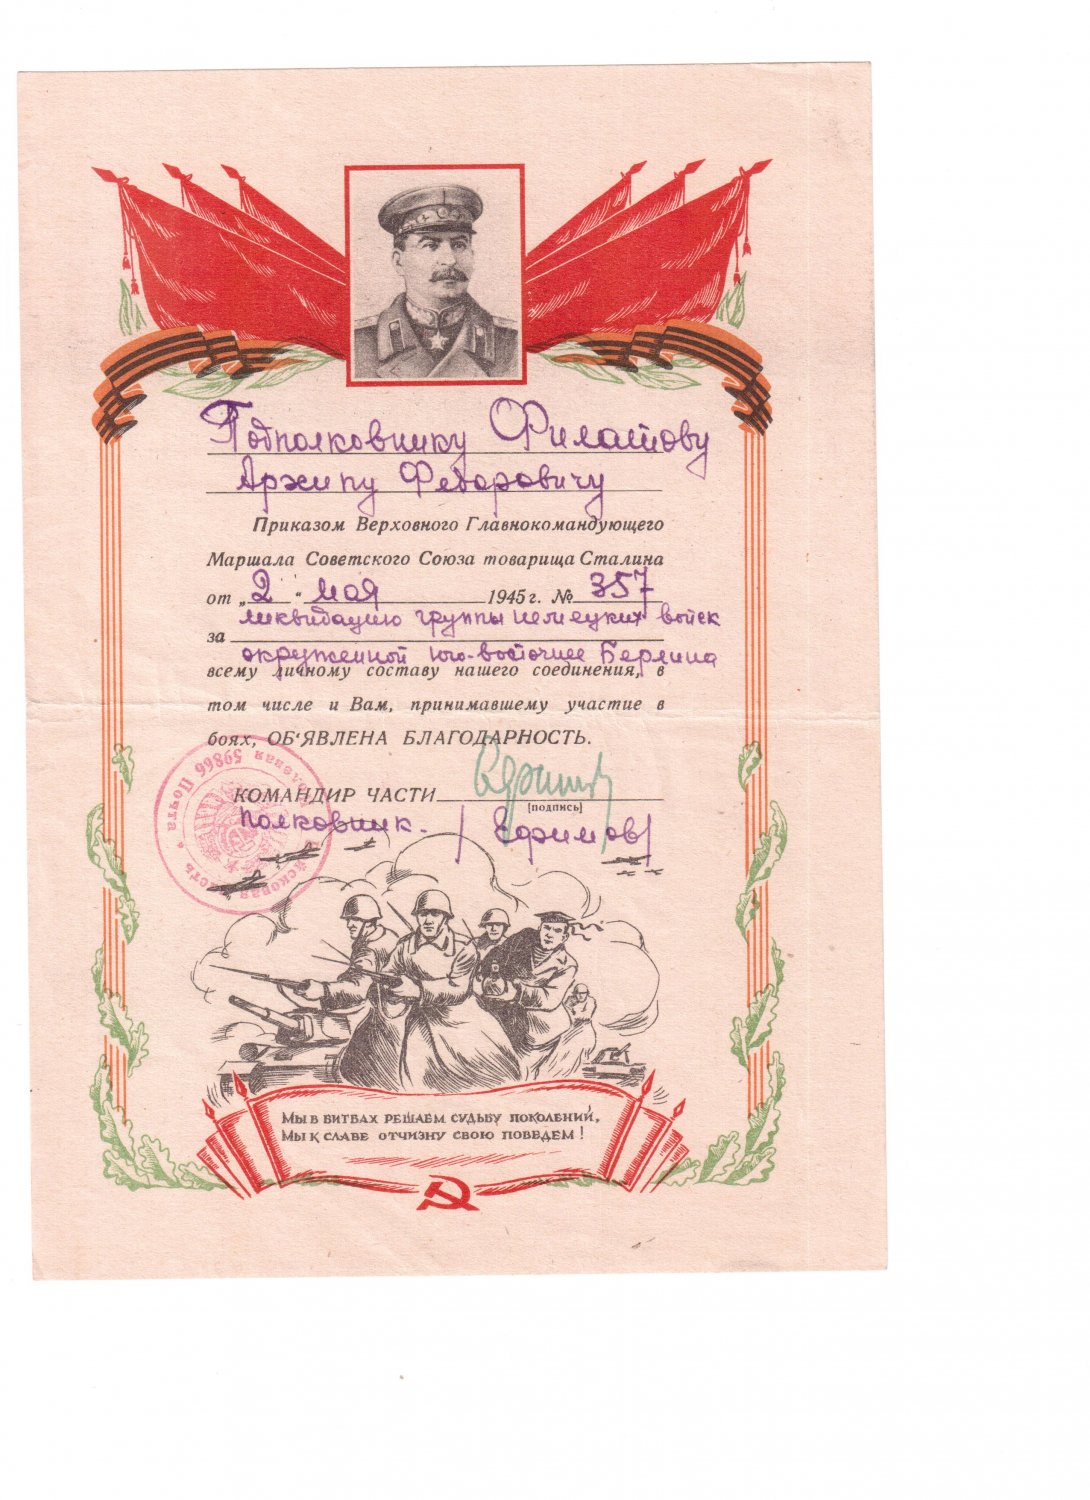 Подполковнику Филатову
Архипу Федоровичу
Приказом Верховного Главнокомандующего
Маршала Советского Союза товарища Сталина
от „2" мая 1945 г. № 357
за ликвидацию группы немецких войск
окруженной юго-восточнее Берлина
всему личному составу нашего соединения, в
том числе и Вам, принимавшему участие в
боях, ОБ'ЯВЛЕНА БЛАГОДАРНОСТЬ.
КОМАНДИР ЧАСТИ
(подпись)
Полковник. /Ефимов/
Войсковая часть * Полевая Почта 59866
МЫ В БИТВАХ РЕШАЕМ СУДЬБУ ПОКОЛЕНИЙ,
МЫ К СЛАВЕ ОТЧИЗНУ СВОЮ ПОВЕДЕМ!